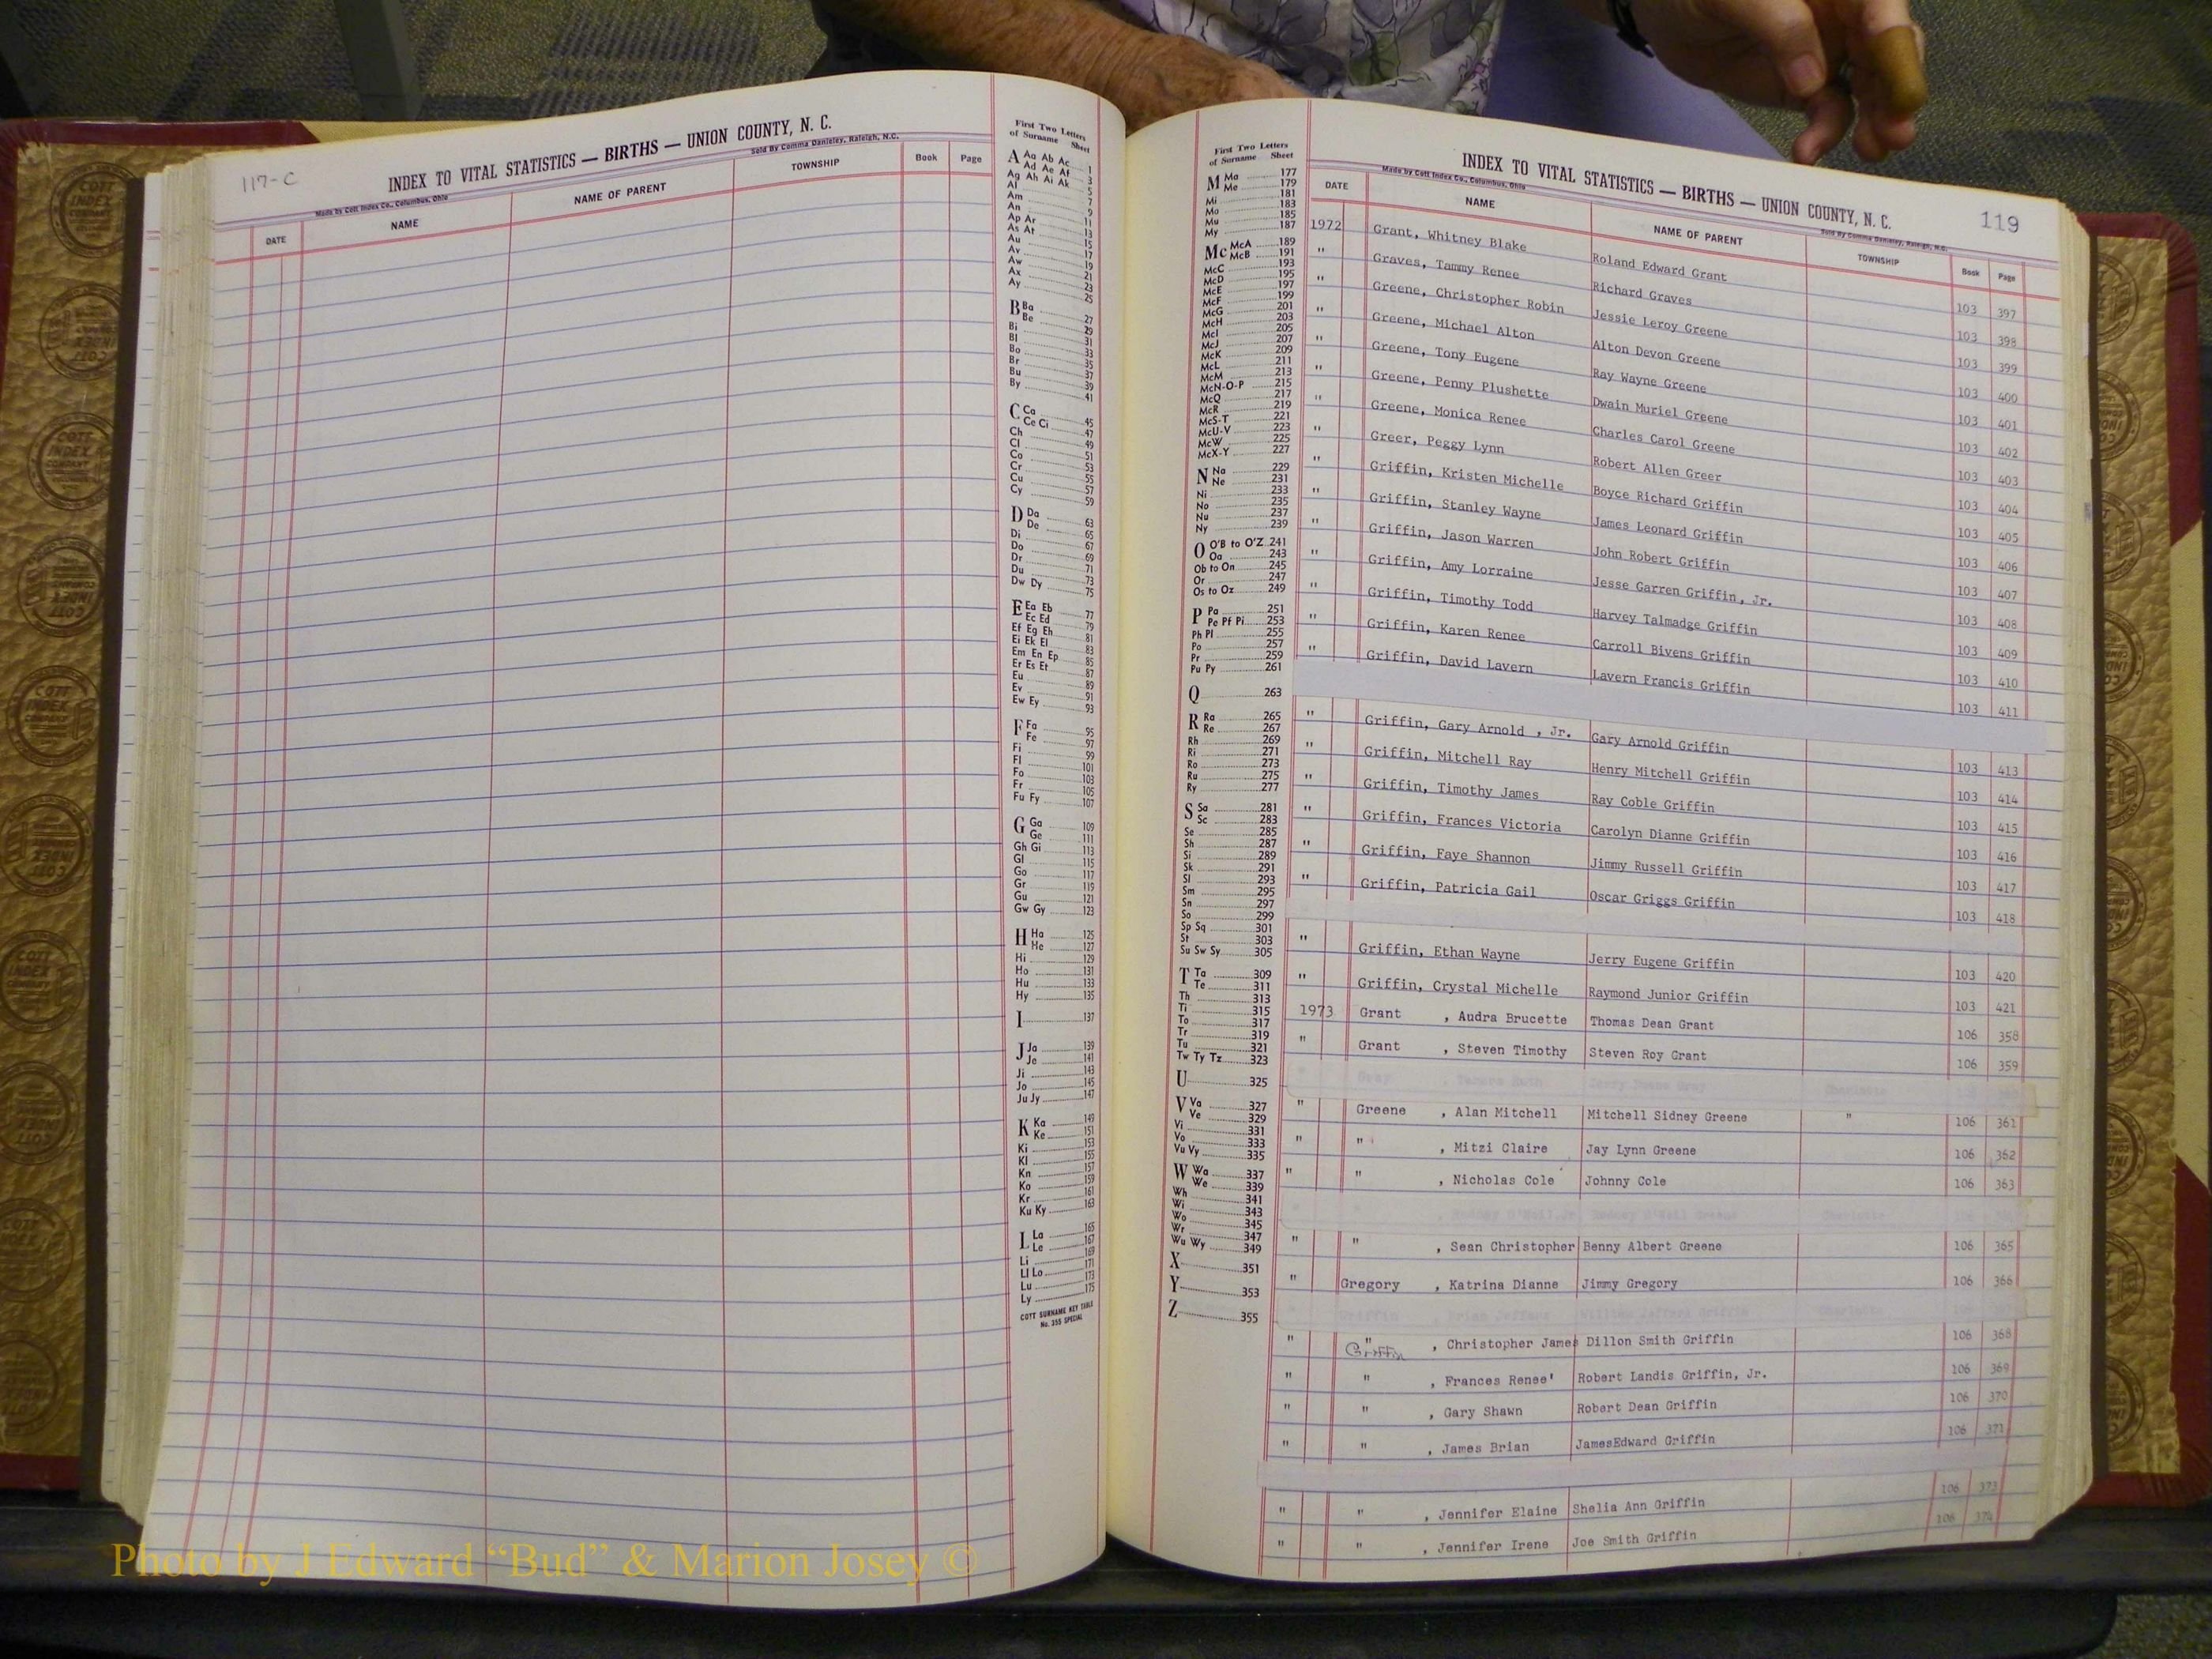 117-C
INDEX TO VITAL STATISTICS — BIRTHS — UNION COUNTY, N. C.
Made by Cott Index Co., Columbus, Ohio
Sold By Comma Danieley, Raleigh, N.C.
DATE NAME NAME OF PARENT TOWNSHIP Book Page
First Two Letters
of Surname Sheet
A Aa Ab Ac 1
Ad Ae Af 3
Ag Ah Ai Ak 5
Al 7
Am 9
An 11
Ap Ar 13
As At 15
Au 17
Av 19
Aw 21
Ax 23
Ay 25
B Ba 27
Be 29
Bi 31
Bl 33
Bo 35
Br 37
Bu 39
By 41
C Ca 45
Ce Ci 47
Ch 49
Cl 51
Co 53
Cr 55
Cu 57
Cy 59
D Da 63
De 65
Di 67
Do 69
Dr 71
Du 73
Dw Dy 75
E Ea Eb 77
Ec Ed 79
Ef Eg Eh 81
Ei Ek El 83
Em En Ep 85
Er Es Et 87
Eu 89
Ev 91
Ew Ey 93
F Fa 95
Fe 97
Fi 99
Fl 101
Fo 103
Fr 105
Fu Fy 107
G Ga 109
Ge 111
Gh Gi 113
Gl 115
Go 117
Gr 119
Gu 121
Gw Gy 123
H Ha 125
He 127
Hi 129
Ho 131
Hu 133
Hy 135
I 137
J Ja 139
Je 141
Ji 143
Jo 145
Ju Jy 147
K Ka 149
Ke 151
Ki 153
Kl 155
Kn 157
Ko 159
Kr 161
Ku Ky 163
L La 165
Le 167
Li 169
Ll Lo 171
Lu 173
Ly 175
COTT SURNAME KEY TABLE
No. 355 SPECIAL
First Two Letters
of Surname Sheet
M Ma 177
Me 179
Mi 181
Mo 183
Mu 185
My 187
Mc McA 189
McB 191
McC 193
McD 195
McE 197
McF 199
McG 201
McH 203
McI 205
McJ 207
McK 209
McL 211
McM 213
McN-O-P 215
McQ 217
McR 219
McS-T 221
McU-V 223
McW 225
McX-Y 227
N Na 229
Ne 231
Ni 233
No 235
Nu 237
Ny 239
O O'B to O'Z 241
Oa 243
Ob to On 245
Or 247
Os to Oz 249
P Pa 251
Pe Pf Pi 253
Ph Pl 255
Po 257
Pr 259
Pu Py 261
Q 263
R Ra 265
Re 267
Rh 269
Ri 271
Ro 273
Ru 275
Ry 277
S Sa 281
Sc 283
Se 285
Sh 287
Si 289
Sk 291
Sl 293
Sm 295
Sn 297
So 299
Sp Sq 301
St 303
Su Sw Sy 305
T Ta 309
Te 311
Th 313
Ti 315
To 317
Tr 319
Tu 321
Tw Ty Tz 323
U 325
V Va 327
Ve 329
Vi 331
Vo 333
Vu Vy 335
W Wa 337
We 339
Wh 341
Wi 343
Wo 345
Wr 347
Wu Wy 349
X 351
Y 353
Z 355
INDEX TO VITAL STATISTICS — BIRTHS — UNION COUNTY, N. C. 119
Made by Cott Index Co., Columbus, Ohio
Sold By Comma Danieley, Raleigh, N.C.
DATE NAME NAME OF PARENT TOWNSHIP Book Page
1972 Grant, Whitney Blake Roland Edward Grant 103 397
" Graves, Tammy Renee Richard Graves 103 398
" Greene, Christopher Robin Jessie Leroy Greene 103 399
" Greene, Michael Alton Alton Devon Greene 103 400
" Greene, Tony Eugene Ray Wayne Greene 103 401
" Greene, Penny Plushette Dwain Muriel Greene 103 402
" Greene, Monica Renee Charles Carol Greene 103 403
" Greer, Peggy Lynn Robert Allen Greer 103 404
" Griffin, Kristen Michelle Boyce Richard Griffin 103 405
" Griffin, Stanley Wayne James Leonard Griffin 103 406
" Griffin, Jason Warren John Robert Griffin 103 407
" Griffin, Amy Lorraine Jesse Garren Griffin, Jr. 103 408
" Griffin, Timothy Todd Harvey Talmadge Griffin 103 409
" Griffin, Karen Renee Carroll Bivens Griffin 103 410
" Griffin, David Lavern Lavern Francis Griffin 103 411
" Griffin, Gary Arnold , Jr. Gary Arnold Griffin 103 413
" Griffin, Mitchell Ray Henry Mitchell Griffin 103 414
" Griffin, Timothy James Ray Coble Griffin 103 415
" Griffin, Frances Victoria Carolyn Dianne Griffin 103 416
" Griffin, Faye Shannon Jimmy Russell Griffin 103 417
" Griffin, Patricia Gail Oscar Griggs Griffin 103 418
" Griffin, Ethan Wayne Jerry Eugene Griffin 103 420
" Griffin, Crystal Michelle Raymond Junior Griffin 103 421
1973 Grant , Audra Brucette Thomas Dean Grant 106 358
" Grant , Steven Timothy Steven Roy Grant 106 359
" Greene , Alan Mitchell Mitchell Sidney Greene " 106 361
" " , Mitzi Claire Jay Lynn Greene 106 362
" " , Nicholas Cole Johnny Cole 106 363
" " , Sean Christopher Benny Albert Greene 106 365
" Gregory , Katrina Dianne Jimmy Gregory 106 366
" " Griffin , Christopher James Dillon Smith Griffin 106 368
" " , Frances Renee' Robert Landis Griffin, Jr. 106 369
" " , Gary Shawn Robert Dean Griffin 106 370
" " , James Brian JamesEdward Griffin 106 371
" " , Jennifer Elaine Shelia Ann Griffin 106 373
" " , Jennifer Irene Joe Smith Griffin 106 374
Photo by J Edward “Bud” & Marion Josey ©